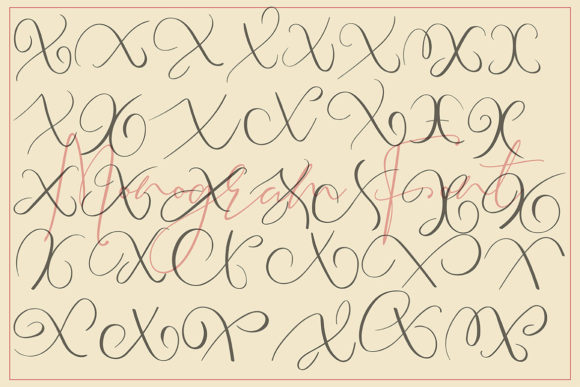 X X X X X X X X
X X X X X X X
Monogram Font
X X X X X X X
X X X X X X
X X X X X X